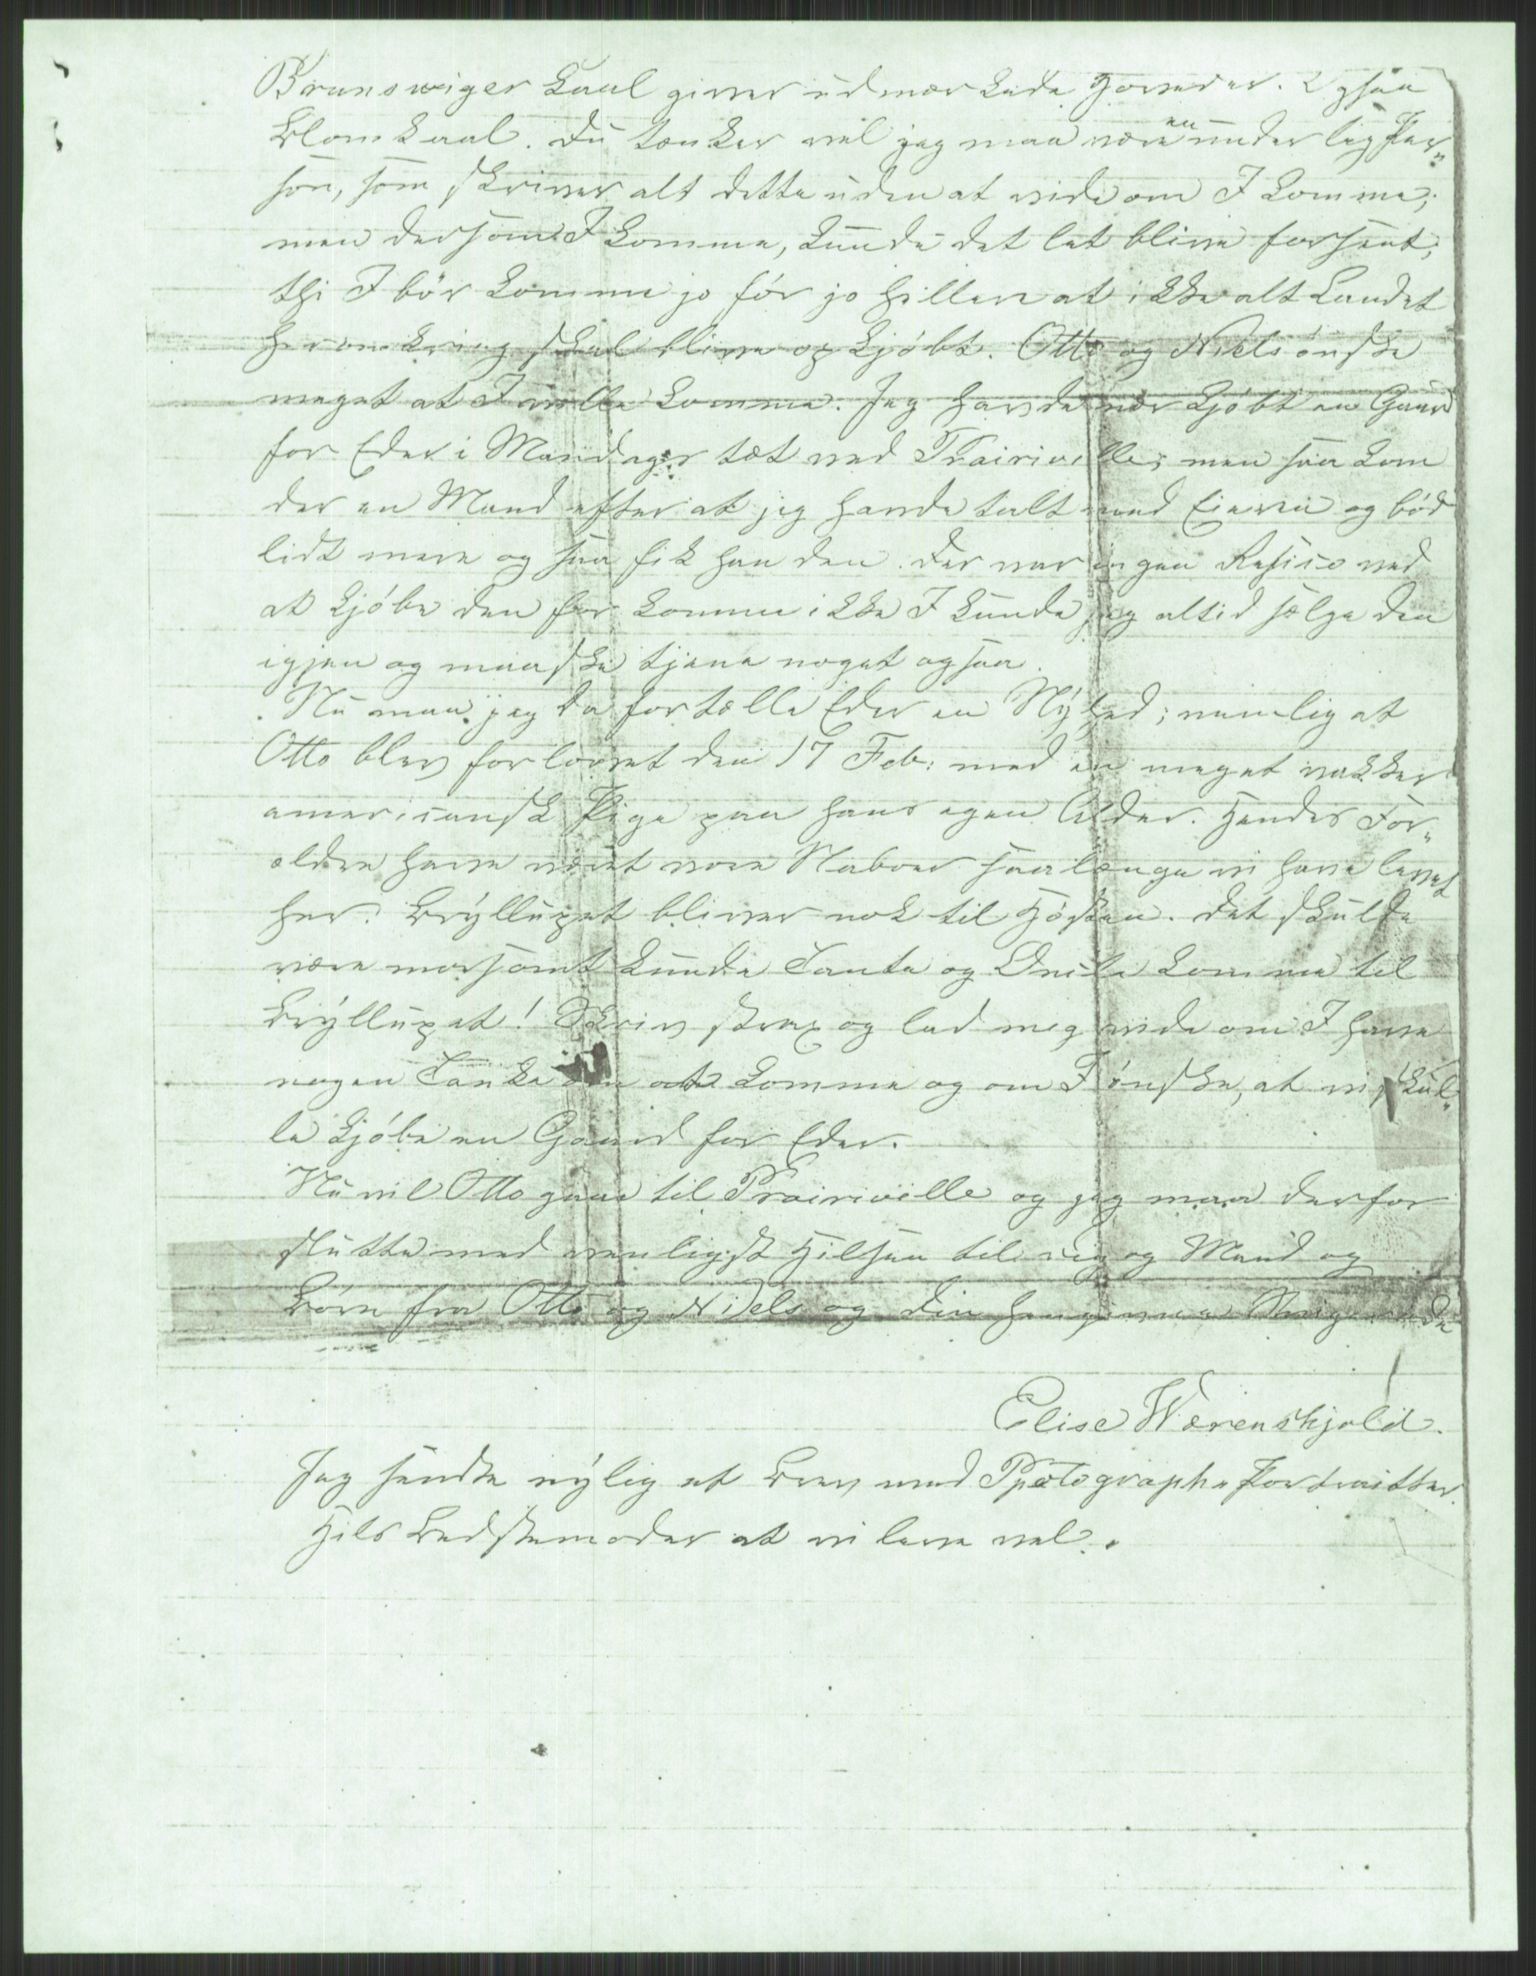 Brunsviger Kaal giver udmærkede Hoveder. Ogsaa
Blomkaal. Du tænker vel jeg maa være en underlig Per-
son, som skriver alt dette uden at vide om I komme;
men dersom I komme, kunde det let blive forsent;
thi I bør komme jo før jo hellere at ikke alt Landet
heromkring skal blive opkjøbt. Otto og Niels ønske
meget at I ville komme. Jeg havde nær kjøbt en Gaard
for Eder i Mandags tæt ved Prairieville; men saa kom
der en Mand efter at jeg havde talt med Eieren og bød
lidt mere og saa fik han den. Der var ingen Resico ved
at kjøbe den for komme ikke I kunde jeg altid sælge den
igjen og maaske tjene noget ogsaa.
Nu maa jeg da fortælle Eder en Nyhed; nemlig at
Otto blev forlovet den 17 Feb: med en meget vakker
americansk Pige paa hans egen Alder. Hendes For-
ældre have været vore Naboer saalænge vi have levet
her. Bryllupet bliver nok til Høsten. Det skulde
være morsomt kunde Tante og Onkle komme til
Bryllupet! Skriv strax og lad mig vide om I have
nogen Tanke om at komme og om I ønske, at vi skul-
le kjøbe en Gaard for Eder.
Nu vil Otto gaae til Prairieville og jeg maa derfor
slutte med venligst Hilsen til dig og Mand og
Børn fra Otto og Niels og din hengivne Svigerinde
Elise Wærenskjold.
Jeg sendte nylig et Brev med Photograph-Portraitter.
Hils Bedstemoder at vi leve vel.